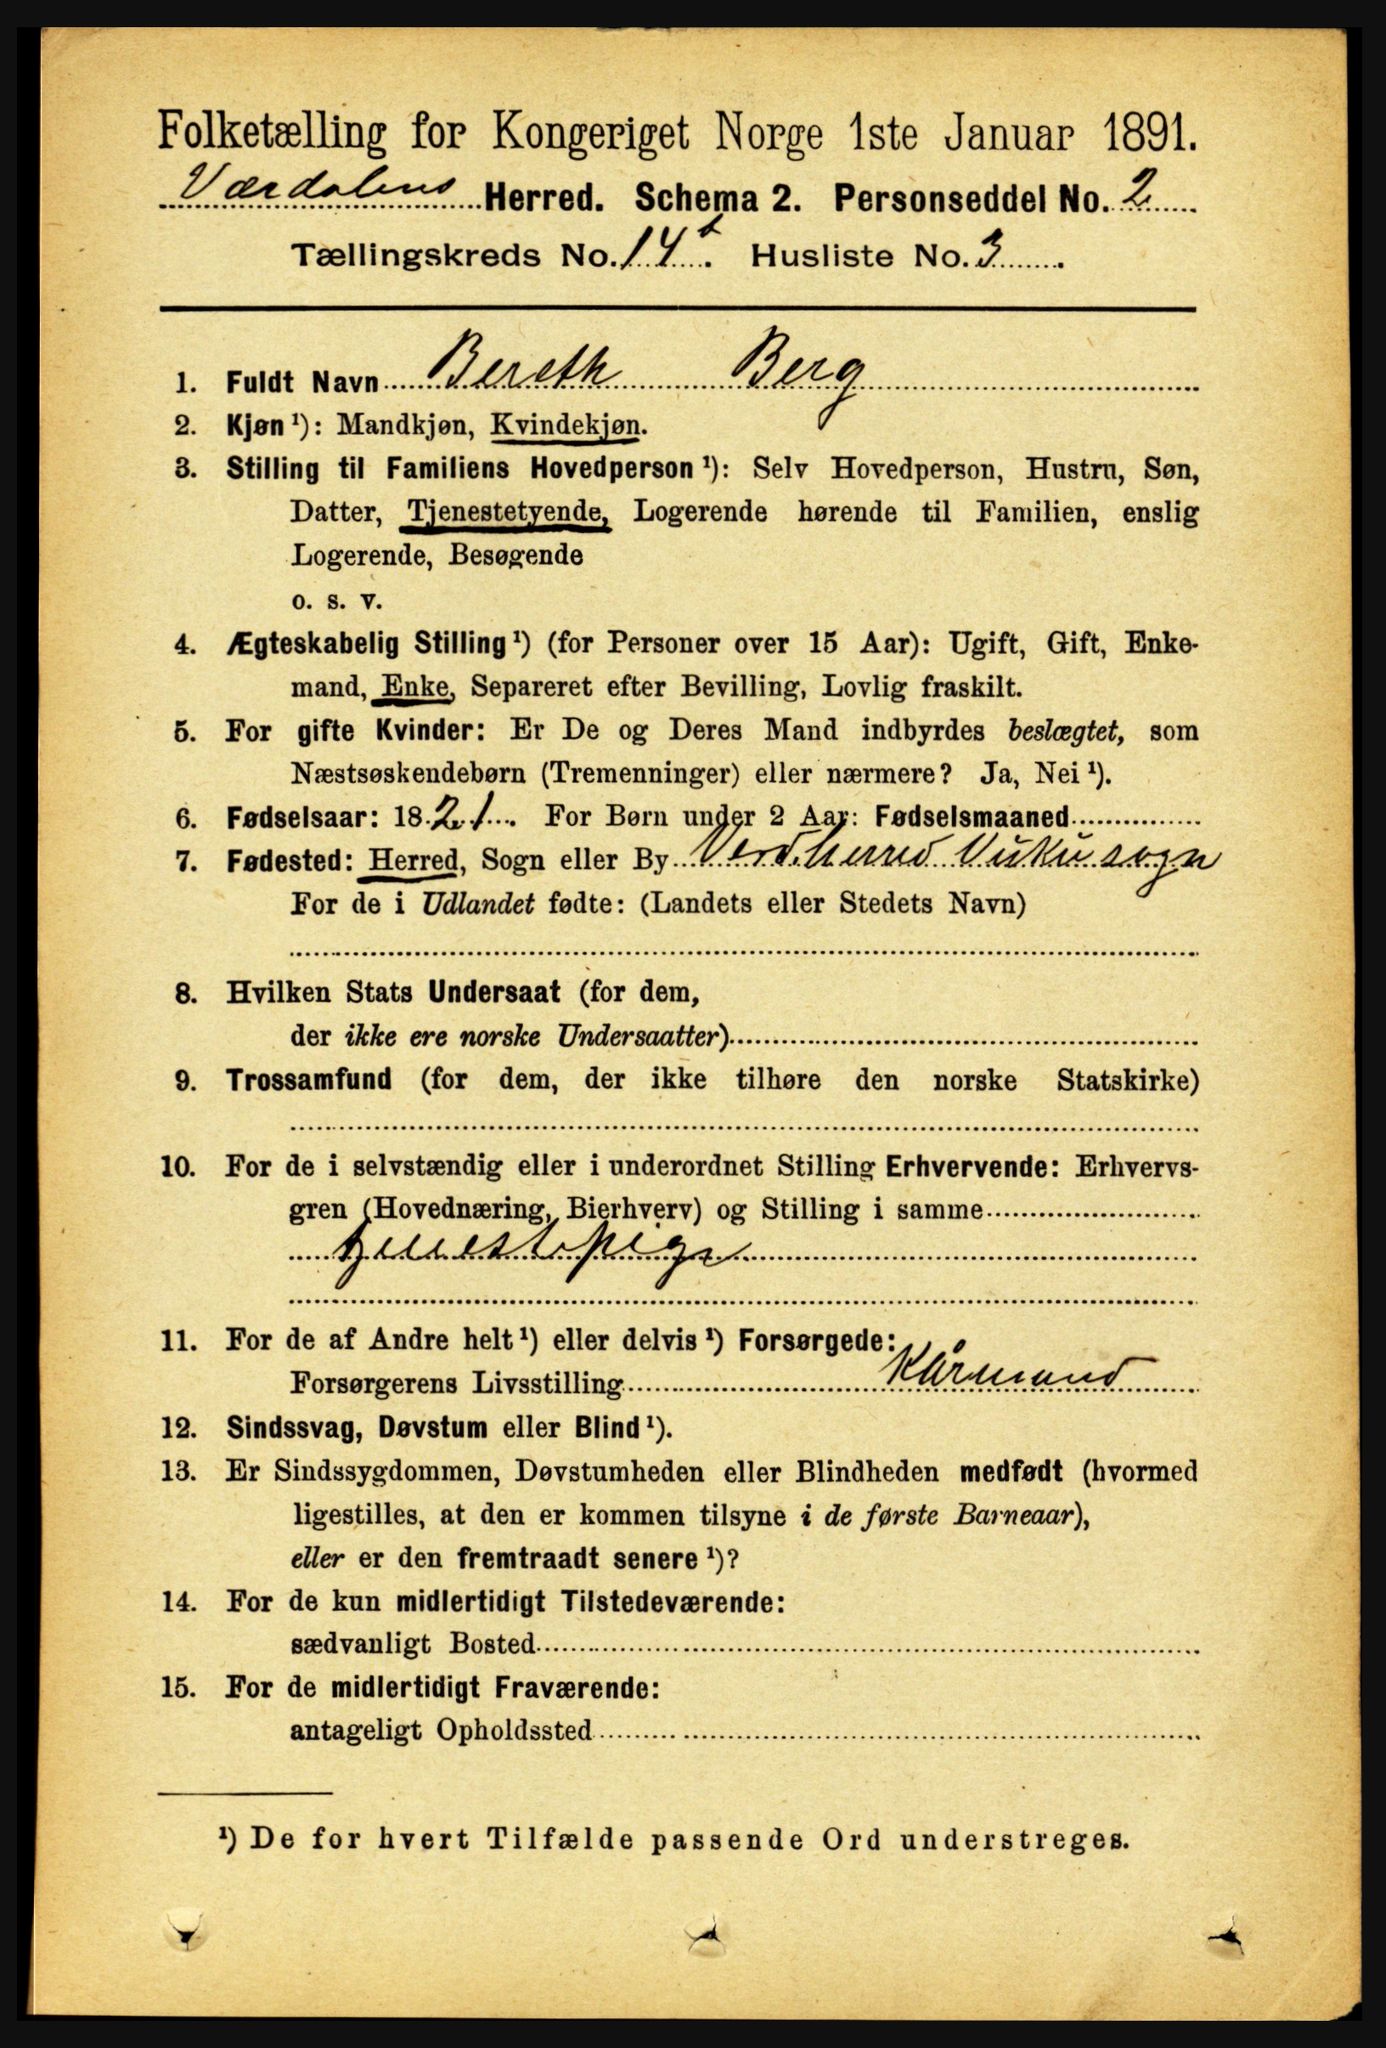 Folketælling for Kongeriget Norge 1ste Januar 1891.
Værdalens Herred. Schema 2. Personseddel No. 2
Tællingskreds No. 14 b. Husliste No. 3
1. Fuldt Navn Bereth Berg
2. Kjøn ¹): Mandkjøn, Kvindekjøn.
3. Stilling til Familiens Hovedperson ¹): Selv Hovedperson, Hustru, Søn,
Datter, Tjenestetyende, Logerende hørende til Familien, enslig
Logerende, Besøgende
o. s. v.
4. Ægteskabelig Stilling ¹) (for Personer over 15 Aar): Ugift, Gift, Enke-
mand, Enke, Separeret efter Bevilling, Lovlig fraskilt.
5. For gifte Kvinder: Er De og Deres Mand indbyrdes beslægtet, som
Næstsøskendebørn (Tremenninger) eller nærmere? Ja, Nei ¹).
6. Fødselsaar: 1821. For Børn under 2 Aar: Fødselsmaaned
7. Fødested: Herred, Sogn eller By Verd.herred Vuku sogn
For de i Udlandet fødte: (Landets eller Stedets Navn)
8. Hvilken Stats Undersaat (for dem,
der ikke ere norske Undersaatter)
9. Trossamfund (for dem, der ikke tilhøre den norske Statskirke)
10. For de i selvstændig eller i underordnet Stilling Erhvervende: Erhvervs-
gren (Hovednæring, Bierhverv) og Stilling i samme
tjenestepige
11. For de af Andre helt ¹) eller delvis ¹) Forsørgede:
Forsørgerens Livsstilling Kårmand
12. Sindssvag, Døvstum eller Blind ¹).
13. Er Sindssygdommen, Døvstumheden eller Blindheden medfødt (hvormed
ligestilles, at den er kommen tilsyne i de første Barneaar),
eller er den fremtraadt senere ¹)?
14. For de kun midlertidigt Tilstedeværende:
sædvanligt Bosted
15. For de midlertidigt Fraværende:
antageligt Opholdssted
¹) De for hvert Tilfælde passende Ord understreges.